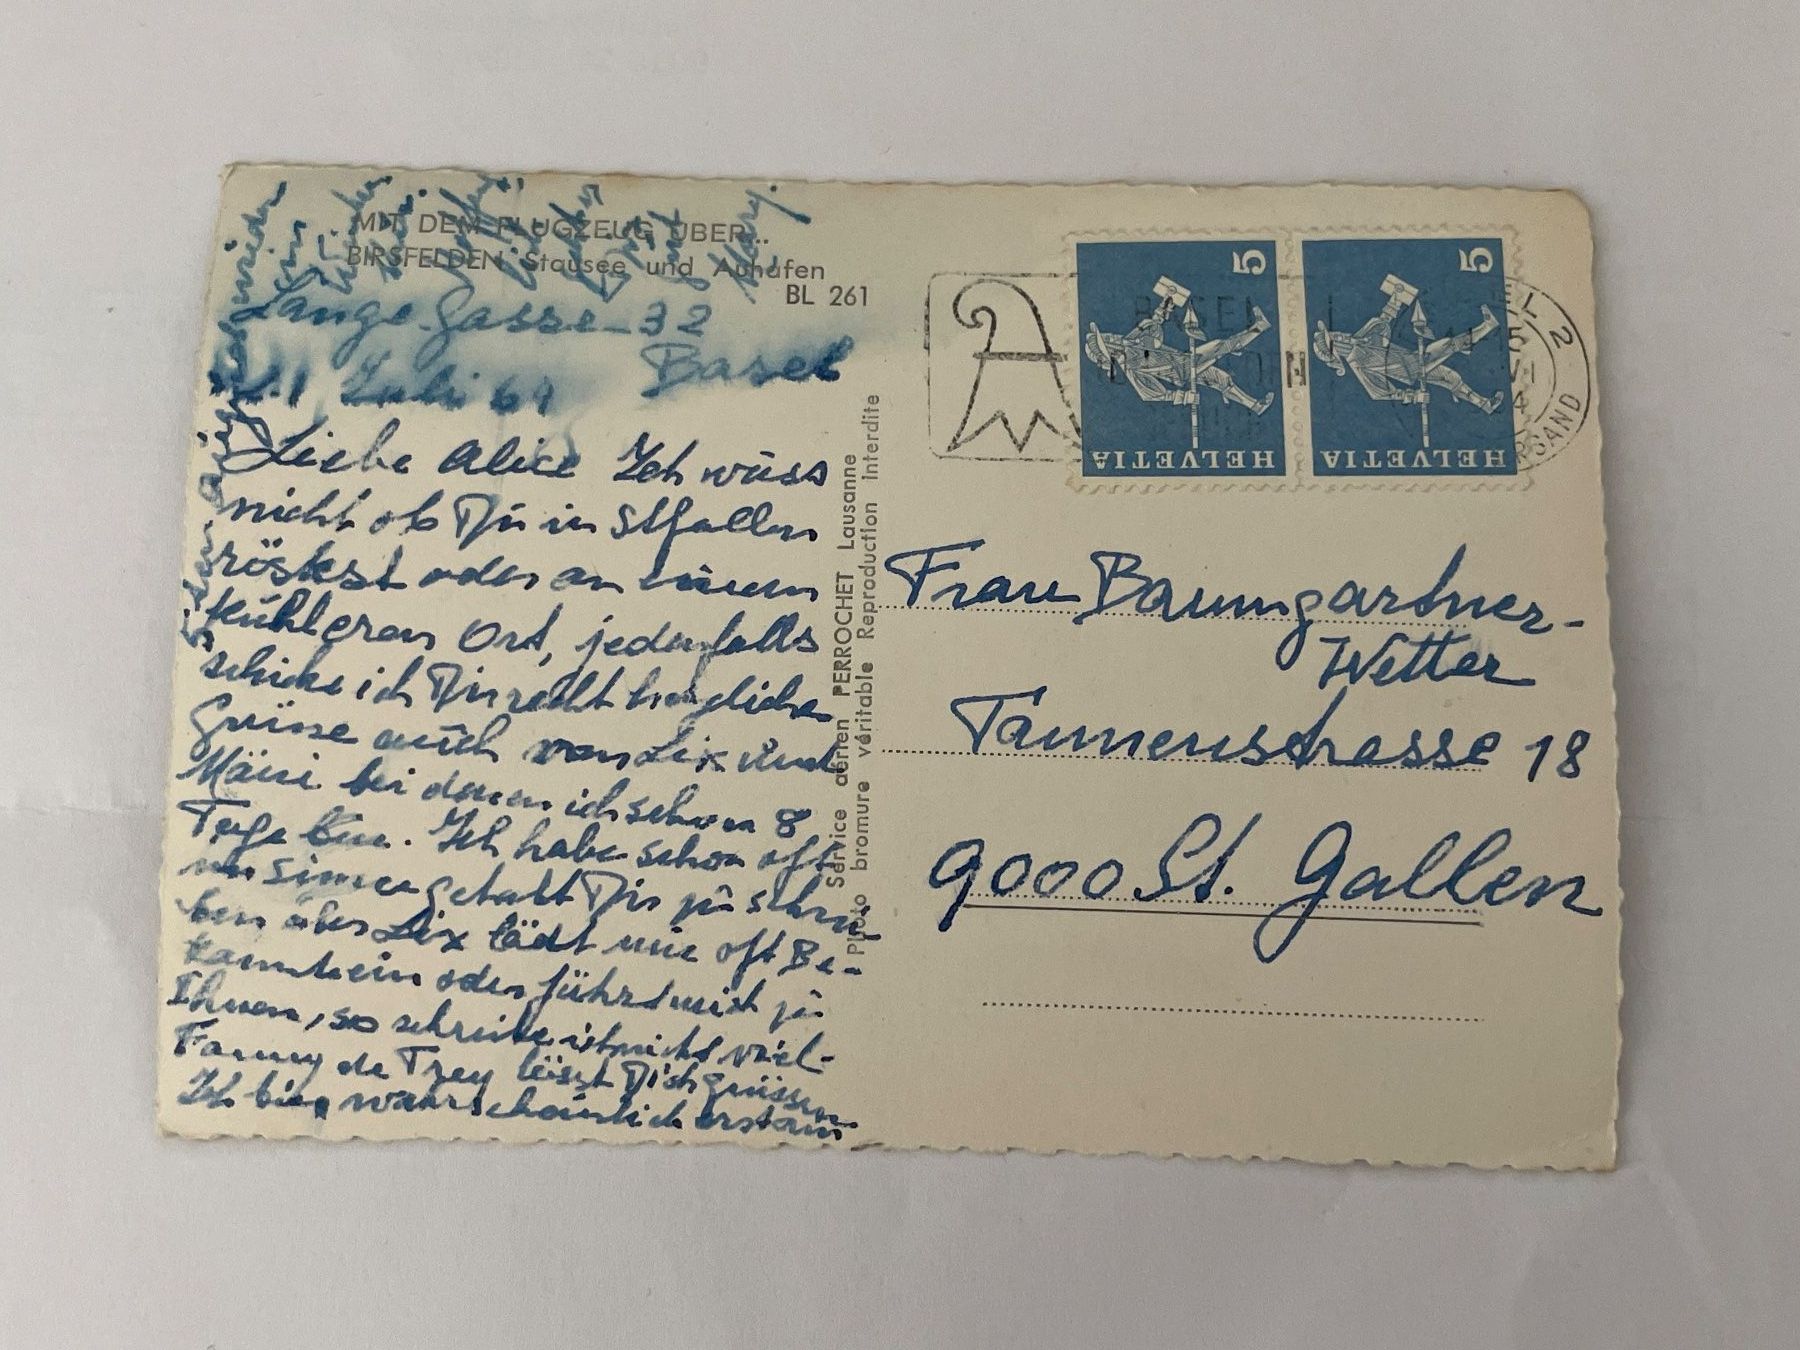 MIT DEM FLUGZEUG ÜBER...
BIRSFELDEN Stausee und Auhafen
BL 261
Lange Gasse 32
Basel
Juli 64
Liebe Alice Ich wüss
nicht ob Du in St Gallen
röstest oder an einem
kühleren Ort, jedenfalls
schicke ich Dir recht herzliche
Grüsse auch von Lix und
Mäusi bei denen ich schon 8
Tage bin. Ich habe schon oft
im Sinne gehabt Dir zu schrei-
ben aber Lix lädt mir oft Be-
kannte ein oder führt mich zu
Ihnen, so schreibe ich nicht viel-
Fanny de Trey lässt Dich grüssen
Ich bin warscheinlich erst am
wieder
Service aérien PERROCHET Lausanne
Photo bromure véritable Reproduction interdite
BASEL 2
VERSAND
5
HELVETIA
5
HELVETIA
Frau Baumgartner-
Wetter
Tannenstrasse 18
9000 St. Gallen